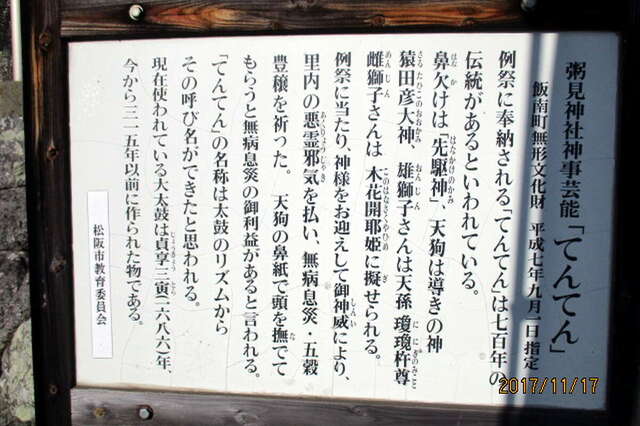 粥見神社神事芸能「てんてん」
飯南町無形文化財　平成七年九月一日指定
例祭に奉納される「てんてん」は七百年の
伝統があるといわれている。
鼻欠けは「先駆神」、天狗は導きの神
猿田彦大神　雄獅子さんは天孫　瓊瓊杵尊
雌獅子さんは　木花開耶姫に擬せられる。
例祭に当たり、神様をお迎えして御神威により、
里内の悪霊邪気を払い、無病息災・五穀
豊穣を祈った。　天狗の鼻紙で頭を撫でて
もらうと無病息災の御利益があると言われる。
「てんてん」の名称は太鼓のリズムから
その呼び名ができたと思われる。
現在使われている大太鼓は貞享三寅(一六八六)年、
今から三一五年以前に作られた物である。
松阪市教育委員会
2017/11/17